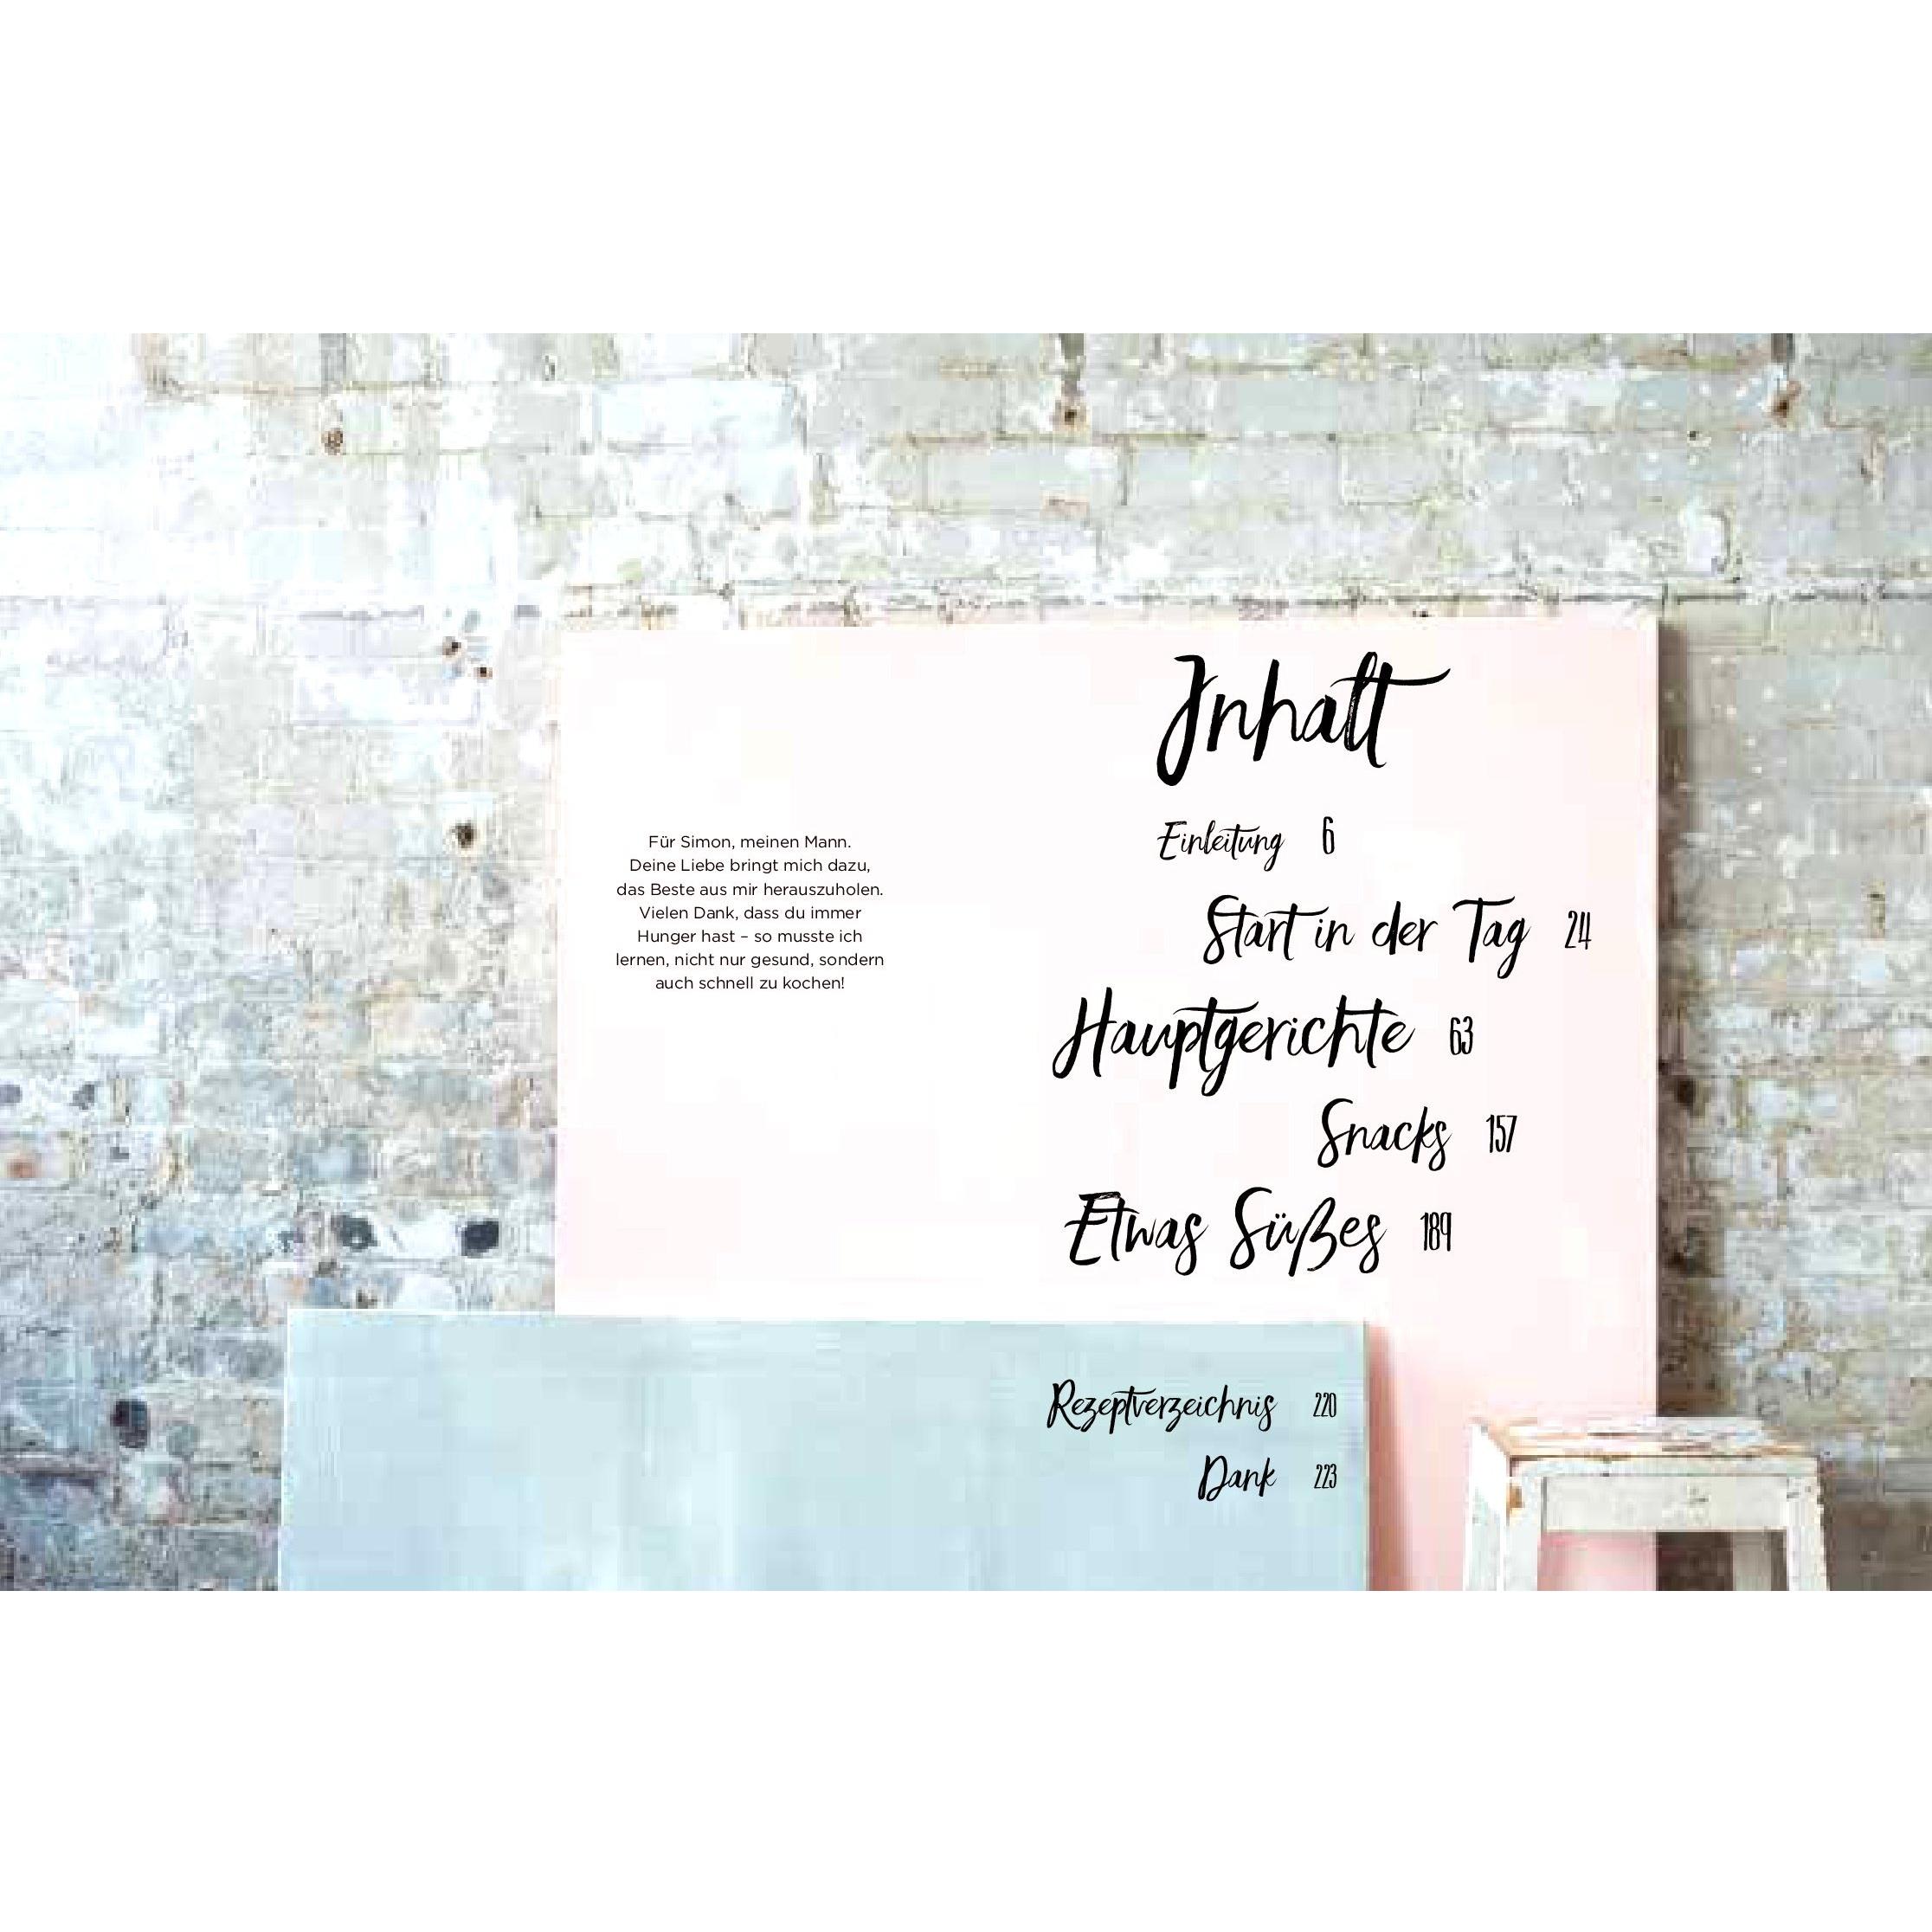 Für Simon, meinen Mann.
Deine Liebe bringt mich dazu,
das Beste aus mir herauszuholen.
Vielen Dank, dass du immer
Hunger hast – so musste ich
lernen, nicht nur gesund, sondern
auch schnell zu kochen!
Inhalt
Einleitung 6
Start in der Tag 24
Hauptgerichte 63
Snacks 157
Etwas Süßes 189
Rezeptverzeichnis 220
Dank 223